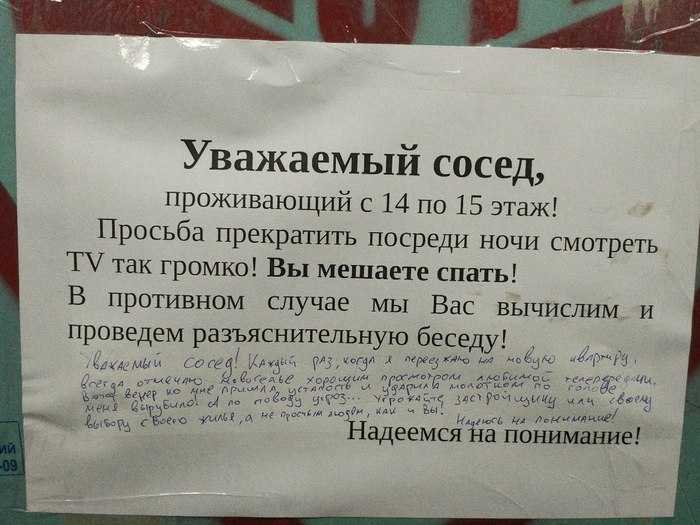 Уважаемый сосед,
проживающий с 14 по 15 этаж!
Просьба прекратить посреди ночи смотреть
TV так громко! Вы мешаете спать!
В противном случае мы Вас вычислим и
проведем разъяснительную беседу!
Уважаемый сосед! Каждый раз, когда я переезжаю на новую квартиру,
всегда отмечаю новоселье хорошим просмотром любимой телепередачи.
В этот вечер ко мне пришла усталость и ударила молотком по голове,
меня вырубило! А по поводу угроз... угрожайте застройщику или своему
выбору своего жилья, а не простым людям, как и вы! Надеюсь на понимание!
Надеемся на понимание!
ий
-09